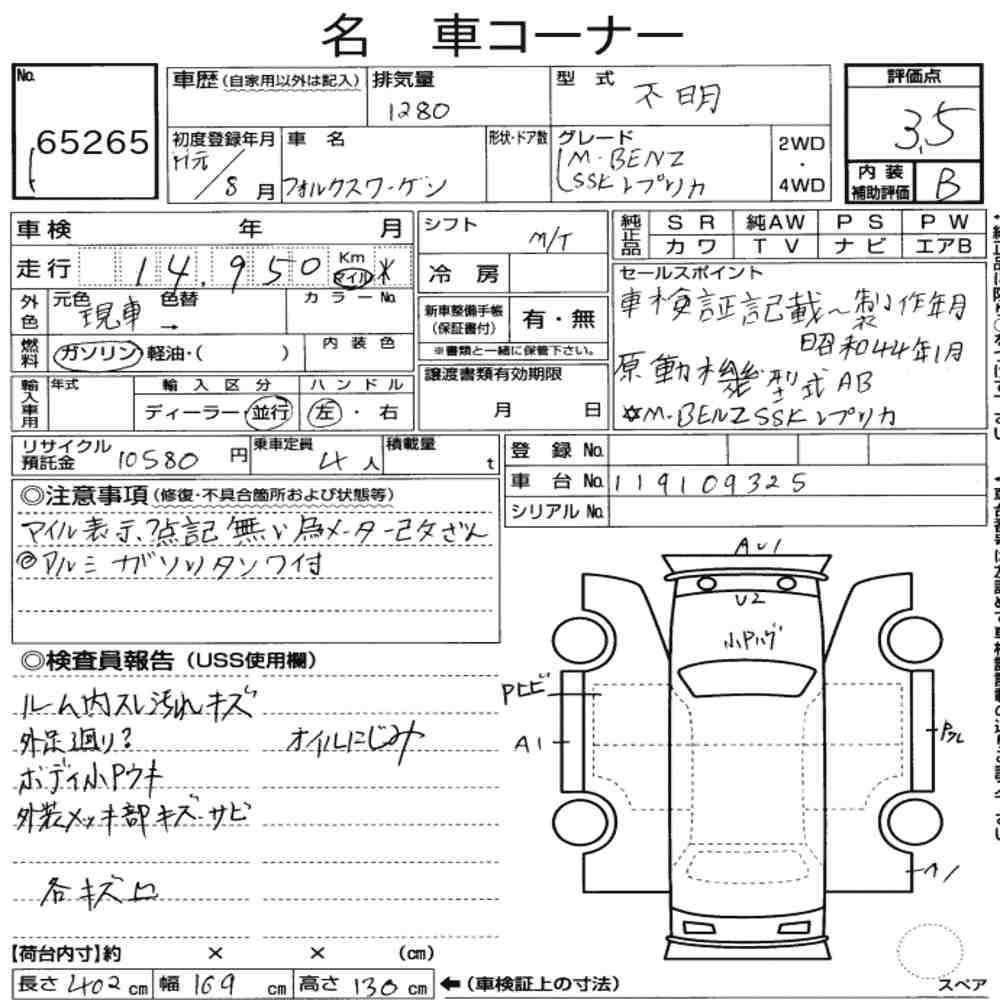 名 車コーナー
No.
65265
車歴(自家用以外は記入)
排気量
1280
型 式
不明
評価点
3.5
初度登録年月
H元/8月
車 名
フォルクスワーゲン
形状・ドア数
グレード
M・BENZ
SSKレプリカ
2WD
・
4WD
内装補助評価
B
車検 年 月
走行 14,950 Km マイル *
外色
元色 色替
現車 →
カラーNo.
燃料
ガソリン・軽油・( )
内装色
輸入車用
年式
輸入区分
ディーラー・並行
ハンドル
左・右
シフト
M/T
冷房
新車整備手帳
(保証書付)
有・無
※書類と一緒に保管下さい。
譲渡書類有効期限
月 日
純正品
SR 純AW PS PW
カワ TV ナビ エアB
セールスポイント
車検証記載〜製作年月
昭和44年1月
原動機型式AB
☆M-BENZSSKレプリカ
リサイクル預託金 10580 円
乗車定員 4人
積載量 t
登録No.
車台No. 119109325
シリアルNo.
◎注意事項(修復・不具合箇所および状態等)
マイル表示、?点記無い為メーター改ざん
◎アルミ ガソリンタンク付
◎検査員報告(USS使用欄)
ルーム内スレ汚れキズ
外足廻り?
オイルにじみ
ボディ小Pウキ
外装メッキ部キズ・サビ
各キズ凹
AU1
U2
小Pハゲ
Pヒビ
A1
【荷台内寸】約 × × (cm)
長さ402cm 幅169cm 高さ130cm ←(車検証上の寸法)
スペア